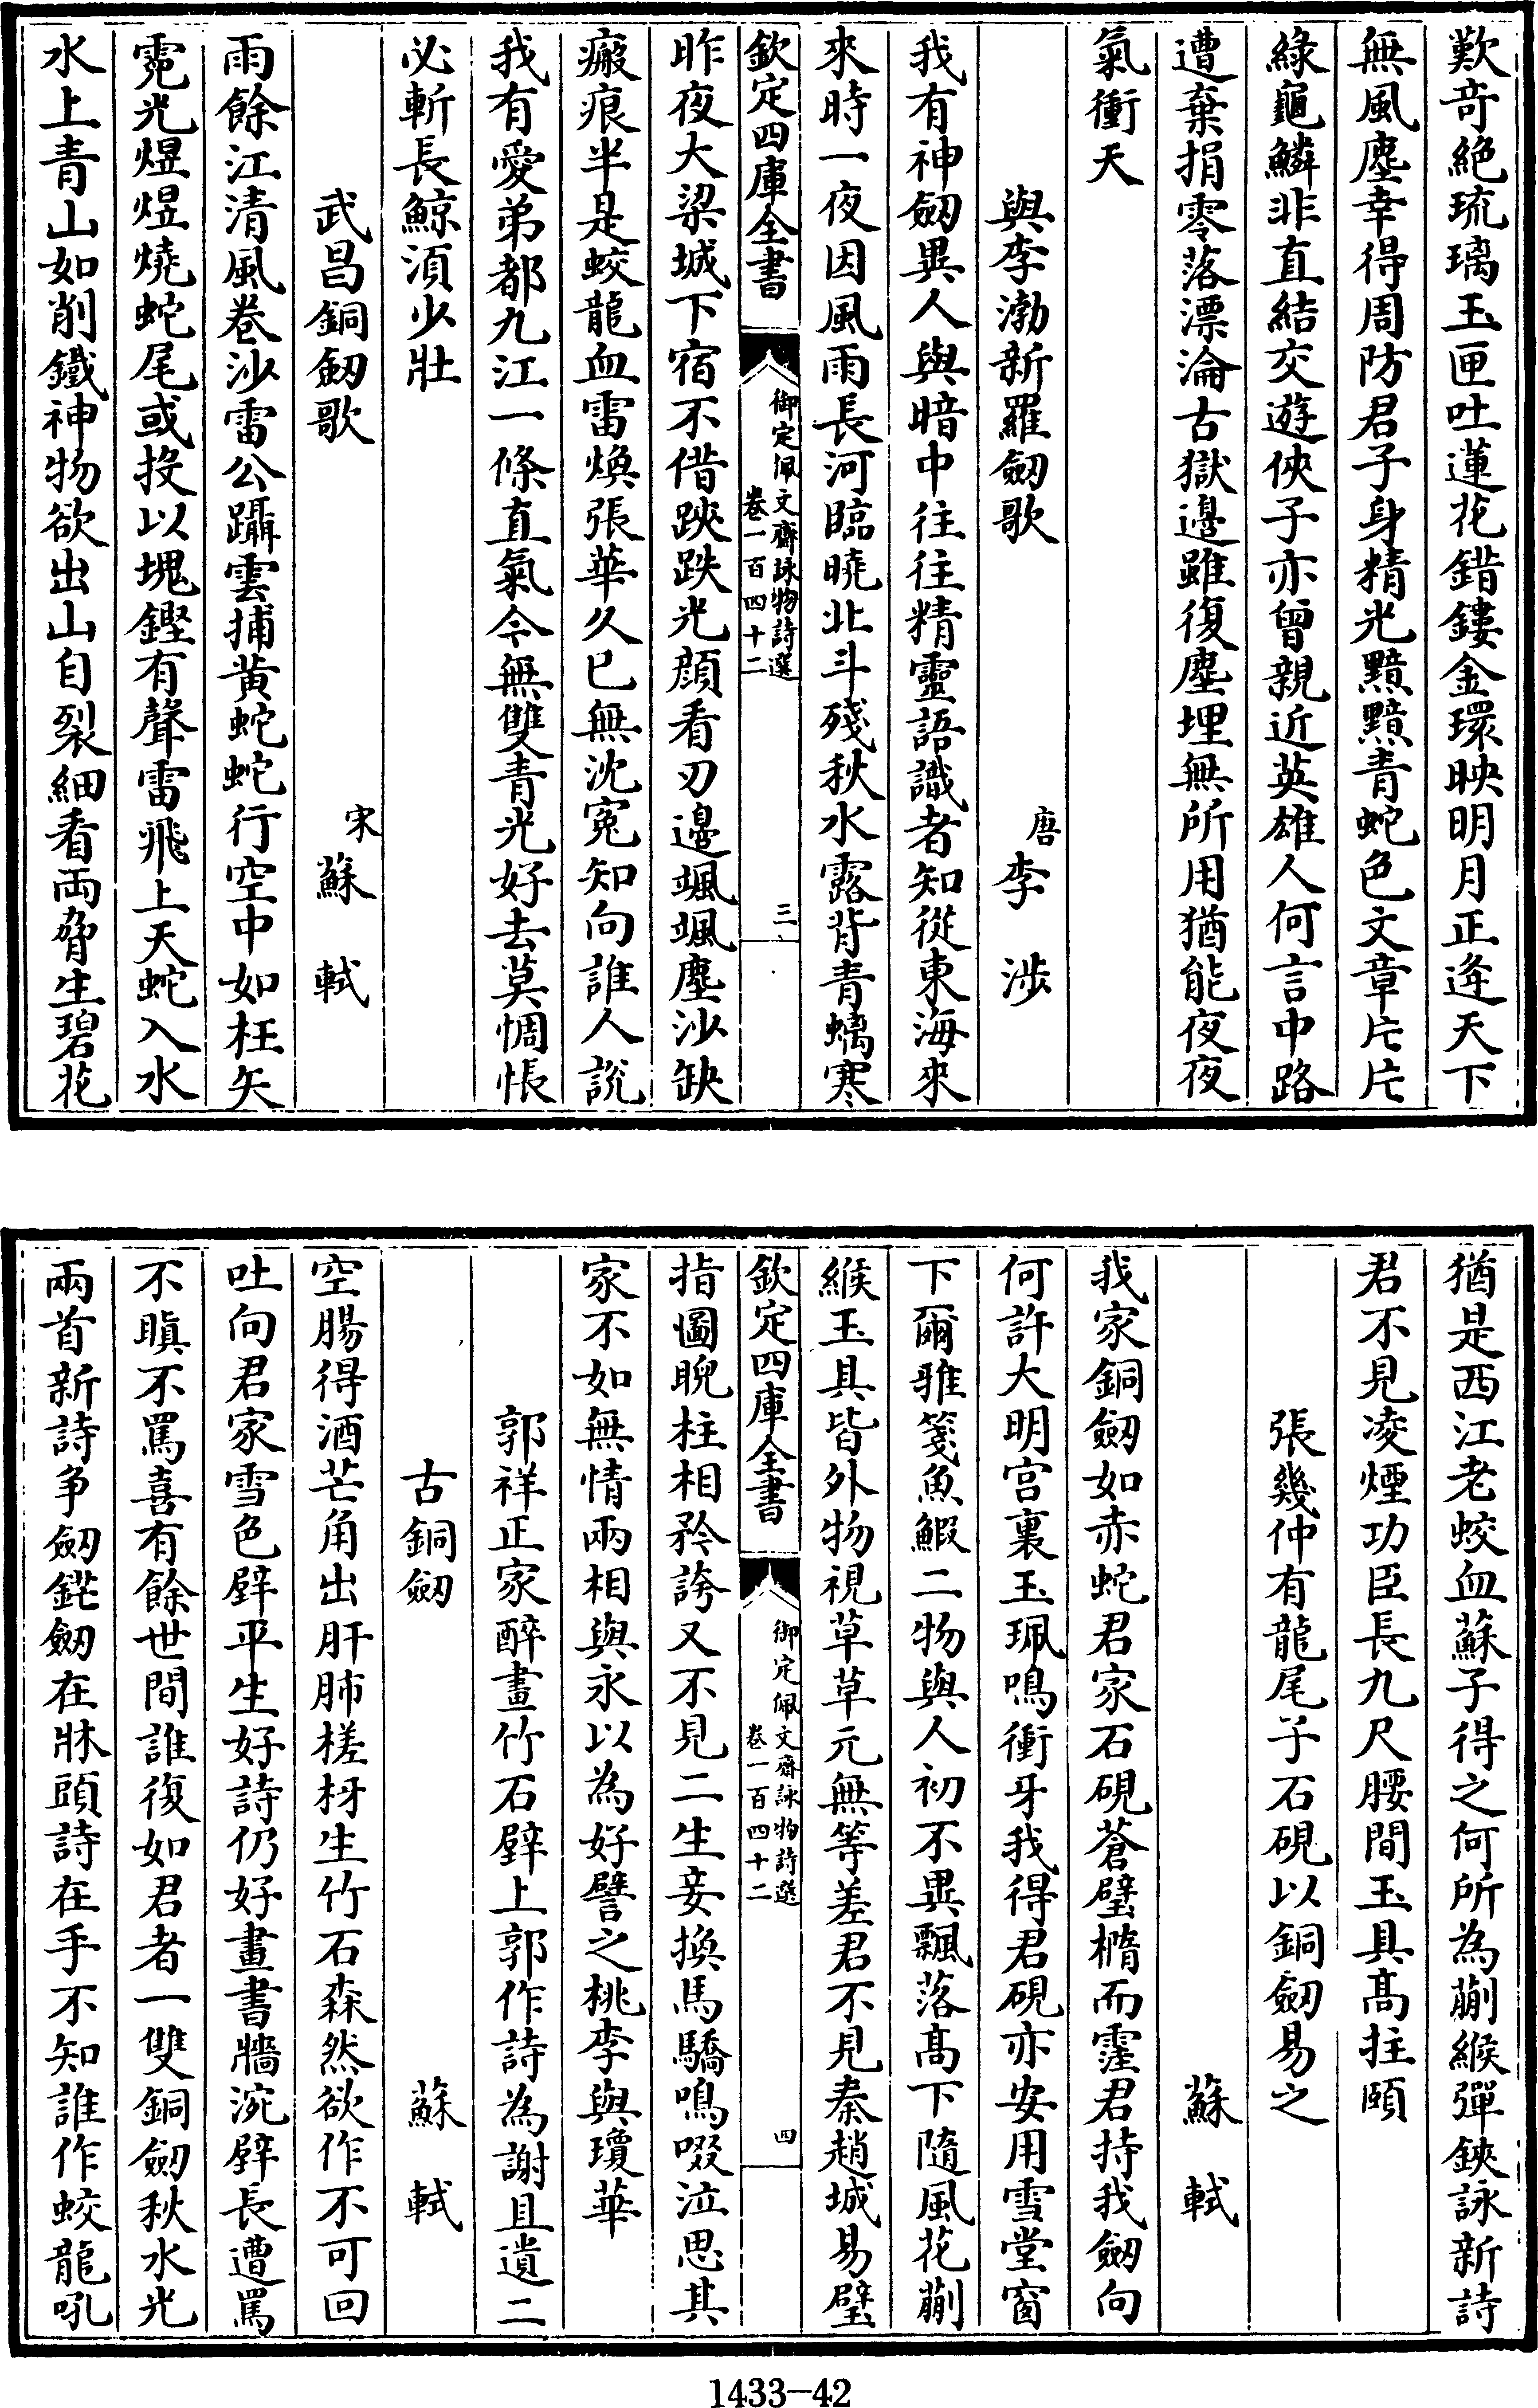 歎奇絶琉璃玉匣吐蓮花錯鏤金環映明月正逄天下
無風塵幸得周防君子身精光黯黯青蛇色文章片片
綠龜鱗非直結交遊俠子亦曾親近英雄人何言中路
遭棄捐零落漂淪古獄邉雖復塵埋無所用猶能夜夜
氣衝天
與李渤新羅劒歌 唐李渉
我有神劒異人與暗中往往精靈語識者知從東海來
來時一夜因風雨長河臨曉北斗殘秋水露背青螭寒
欽定四庫全書 御定佩文齋詠物詩選 卷一百四十二 三
昨夜大梁城下宿不借䟑跌光顔看刃邉颯颯塵沙缺
瘢痕半是蛟龍血雷煥張華久已無沈寃知向誰人説
我有愛弟都九江一條直氣今無雙青光好去莫惆悵
必斬長鯨湏少壯
武昌銅劒歌 宋蘇軾
雨餘江清風卷沙雷公躡雲捕黄蛇蛇行空中如枉矢
霓光煜煜燒蛇尾或投以塊鏗有聲雷飛上天蛇入水
水上青山如削鐵神物欲出山自裂細看兩脅生碧花
猶是西江老蛟血蘇子得之何所為蒯緱彈鋏詠新詩
君不見凌煙功臣長九尺腰間玉具髙拄頤
張幾仲有龍尾子石硯以銅劒易之
蘇軾
我家銅劒如赤蛇君家石硯蒼璧橢而窪君持我劒向
何許大明宫裏玉珮鳴衝牙我得君硯亦安用雪堂窗
下爾雅箋魚鰕二物與人初不異飄落髙下隨風花蒯
緱玉具皆外物視草草元無等差君不見秦趙城易璧
欽定四庫全書 御定佩文齋詠物詩選 卷一百四十二 四
指圖睨柱相矜誇又不見二生妾換馬驕鳴啜泣思其
家不如無情兩相與永以為好譬之桃李與瓊華
郭祥正家醉畫竹石壁上郭作詩為謝且遺二
古銅劒 蘇軾
空腸得酒芒角出肝肺槎枒生竹石森然欲作不可回
吐向君家雪色壁平生好詩仍好畫書牆涴壁長遭罵
不瞋不罵喜有餘世間誰復如君者一雙銅劒秋水光
兩首新詩爭劒鋩劒在牀頭詩在手不知誰作蛟龍吼
1433—42